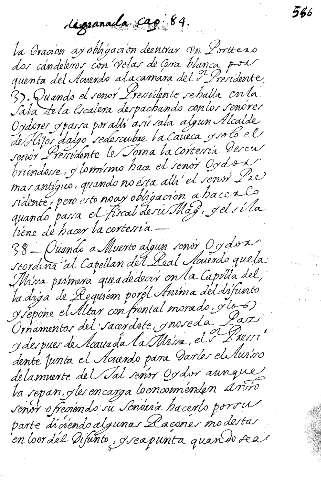 de granada Cap. 84.
586
la oracion ay obligacion de entrar un Portero
dos candeleros con Velas de Cera blanca por
quenta del Acuerdo a la camara del Sr. Presidente.
37. Quando el señor Presidente se halla en la
Sala de la Escalera despachando con los señores
Oydores y passa por alli a su sala algun Alcalde
de Hijos dalgo se descubre la Caveca y solo el
señor Presidente le toma la cortesia descu
briendose, y lo mismo hace el señor Oydor
mas antiguo, quando no esta alli el señor Pre
sidente, pero esto no ay obligacion a hacerlo
quando passa el fiscal de su Magd. y el si la
tiene de hacer la cortesia
38 Quando a Muerto algun señor Oydor
se ordina al Capellan del Real Acuerdo que la
Missa primera que a de decir en la Capilla del,
la diga de Requiem por el Anima del difunto
y se pone el Altar con frontal morado, y los
Ornamentos del sacerdote, y no se da Paz
y despues de Acavada la Missa, el Sr. Pressi
dente junta el Acuerdo para darles el Aviso
de la muerte del tal señor Oydor aunque
la sepan, y les encarga lo encomienden a nuestro
señor ofreciendo su señoria hacerlo por su
parte diciendo algunas Raçones modestas
en loor del Difunto, y se apunta quando se a